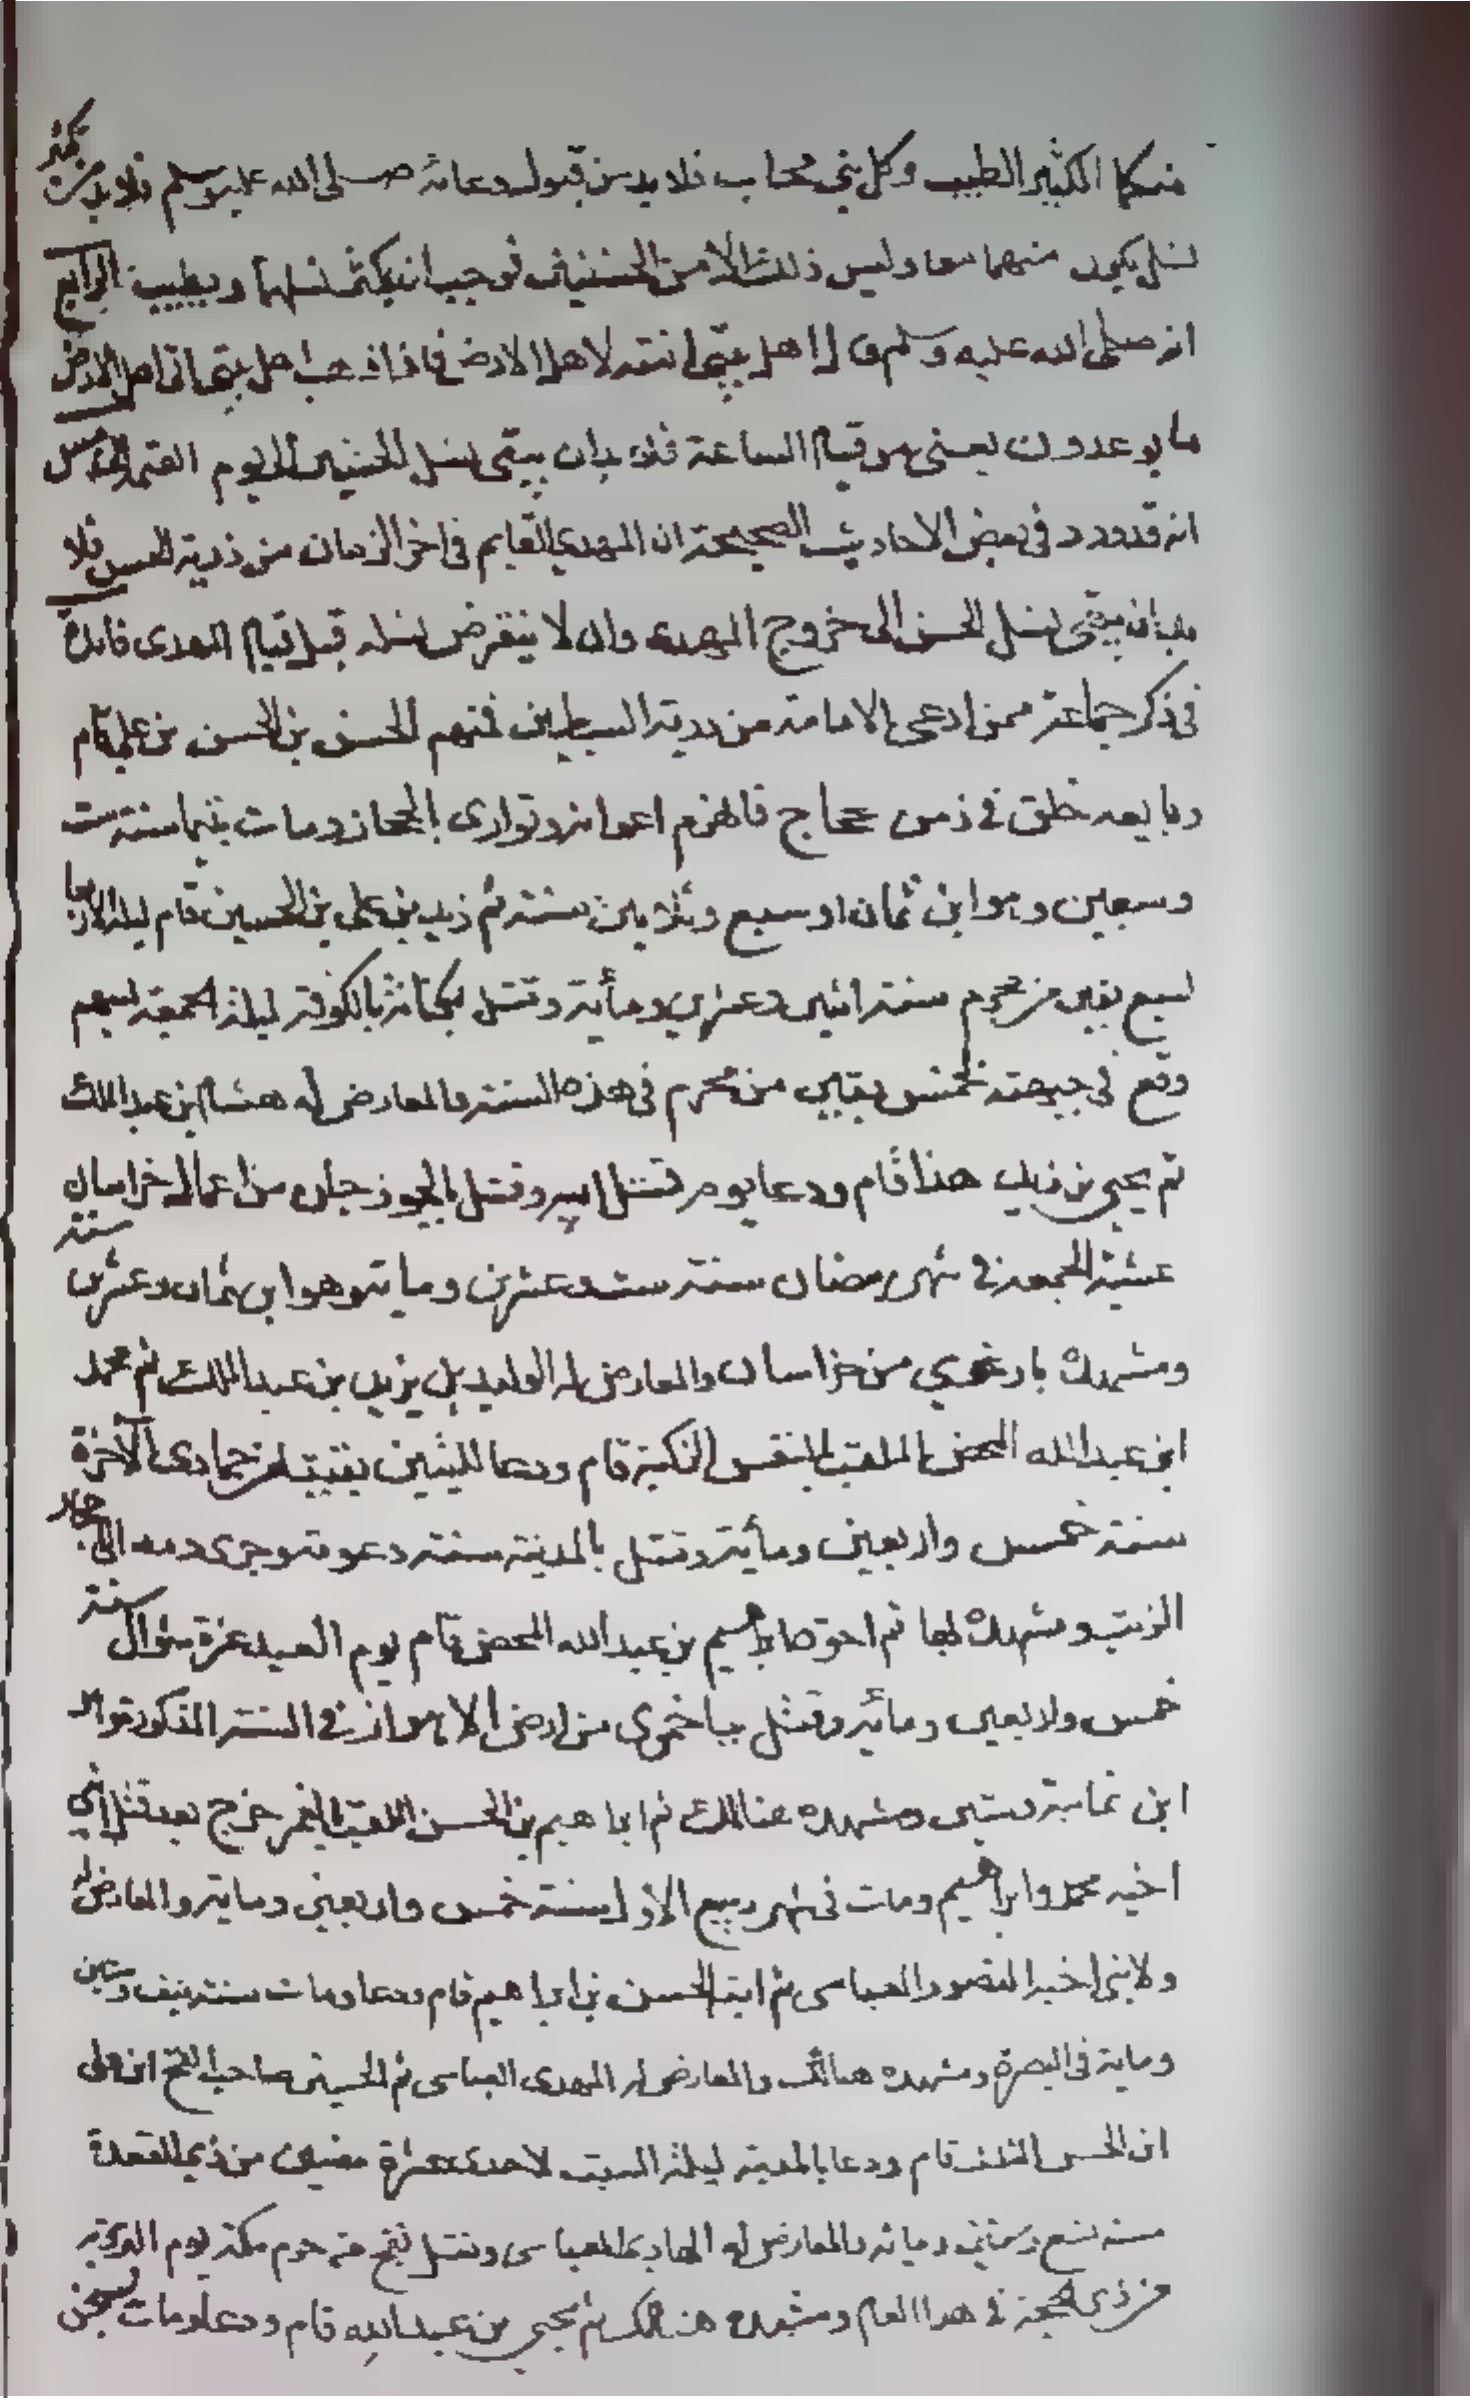 منكما الكثير الطيب وكل نبي مجاب فلا بد من قبول دعائه صلى الله عليه وسلم فلا بد من تكثير
نسل يكون منهما معا وليس ذلك الا من الحسنين فوجب ان يكثر نسلهما ويطيب الرابع
انه صلى الله عليه وسلم قال اهل بيتي امنة لاهل الارض فاذا ذهب اهل بيتي اتى اهل الارض
ما يوعدون يعني من قيام الساعة فلا بد ان يبقى نسل الحسنين الى يوم القيمة الخامس
انه قد ورد في بعض الاحاديث الصحيحة ان المهدي القايم في اخر الزمان من ذرية الحسن فلا
بد ان يبقى نسل الحسن الى خروج المهدي وان لا ينقرض نسله قبل قيام المهدي فائدة
في ذكر جماعة ممن ادعى الامامة من ذرية السبطين فمنهم الحسن بن الحسن بن علي قام
وبايعه خلق في زمن حجاج فانهزم اعوانه وتوارى بالحجاز ومات بينها سنة ست
وسبعين وهو ابن ثمان او سبع وثلاثين سنة ثم زيد بن علي بن الحسين قام ليلة الاربعا
لسبع بقين من محرم سنة اثنين وعشرين ومأية وقتل بالكوفة ليلة الجمعة لسهم
وقع في جبهته لخمس بقين من محرم في هذه السنة والمعارض له هشام ابن عبد الملك
ثم يحيى بن زيد هذا قام ودعا يوم قتل ابيه وقتل بالجوزجان من اعمال خراسان
عشية الجمعة في شهر رمضان سنة ست وعشرين ومايته وهو ابن ثمان وعشرين سنة
ومشهده بارغوي من خراسان والمعارض له الوليد بن يزيد بن عبد الملك ثم محمد
ابن عبد الله المحض الملقب بالنفس الزكية قام ودعا لليلتين بقيتا من جمادى الآخرة
سنة خمس واربعين ومأية وقتل بالمدينة سنة دعوته وجرى دمه الى احجار
الزيت ومشهده بها ثم اخوه ابراهيم بن عبد الله المحض قام يوم العيد غرة شوال سنة
خمس واربعين ومائة وقتل بباخمرى من ارض الاهواز في السنة المذكورة وهو
ابن ثمانية وستين ومشهده هنالك ثم ابراهيم بن الحسن الملقب بالغمر خرج بعد قتل ابني
اخيه محمد وابراهيم ومات في شهر ربيع الاول سنة خمس واربعين ومايته والمعارض له
ولابني اخيه المنصور العباسي ثم ابنه الحسن بن ابراهيم قام ودعا ومات سنة نيف وستين
وماية في البصرة ومشهده هنالك والمعارض له المهدي العباسي ثم الحسين صاحب الفخ ابن علي
ابن الحسن المثلث قام ودعا بالمدينة ليلة السبت لاحدى عشرة مضين من ذي القعدة
سنة تسع وستين ومائة والمعارض له الهادي العباسي وقتل بفخ من حرم مكة يوم التروية
من ذي الحجة في هذا العام ومشهده هنالك ثم يحيى بن عبد الله قام ودعا ومات بسجن